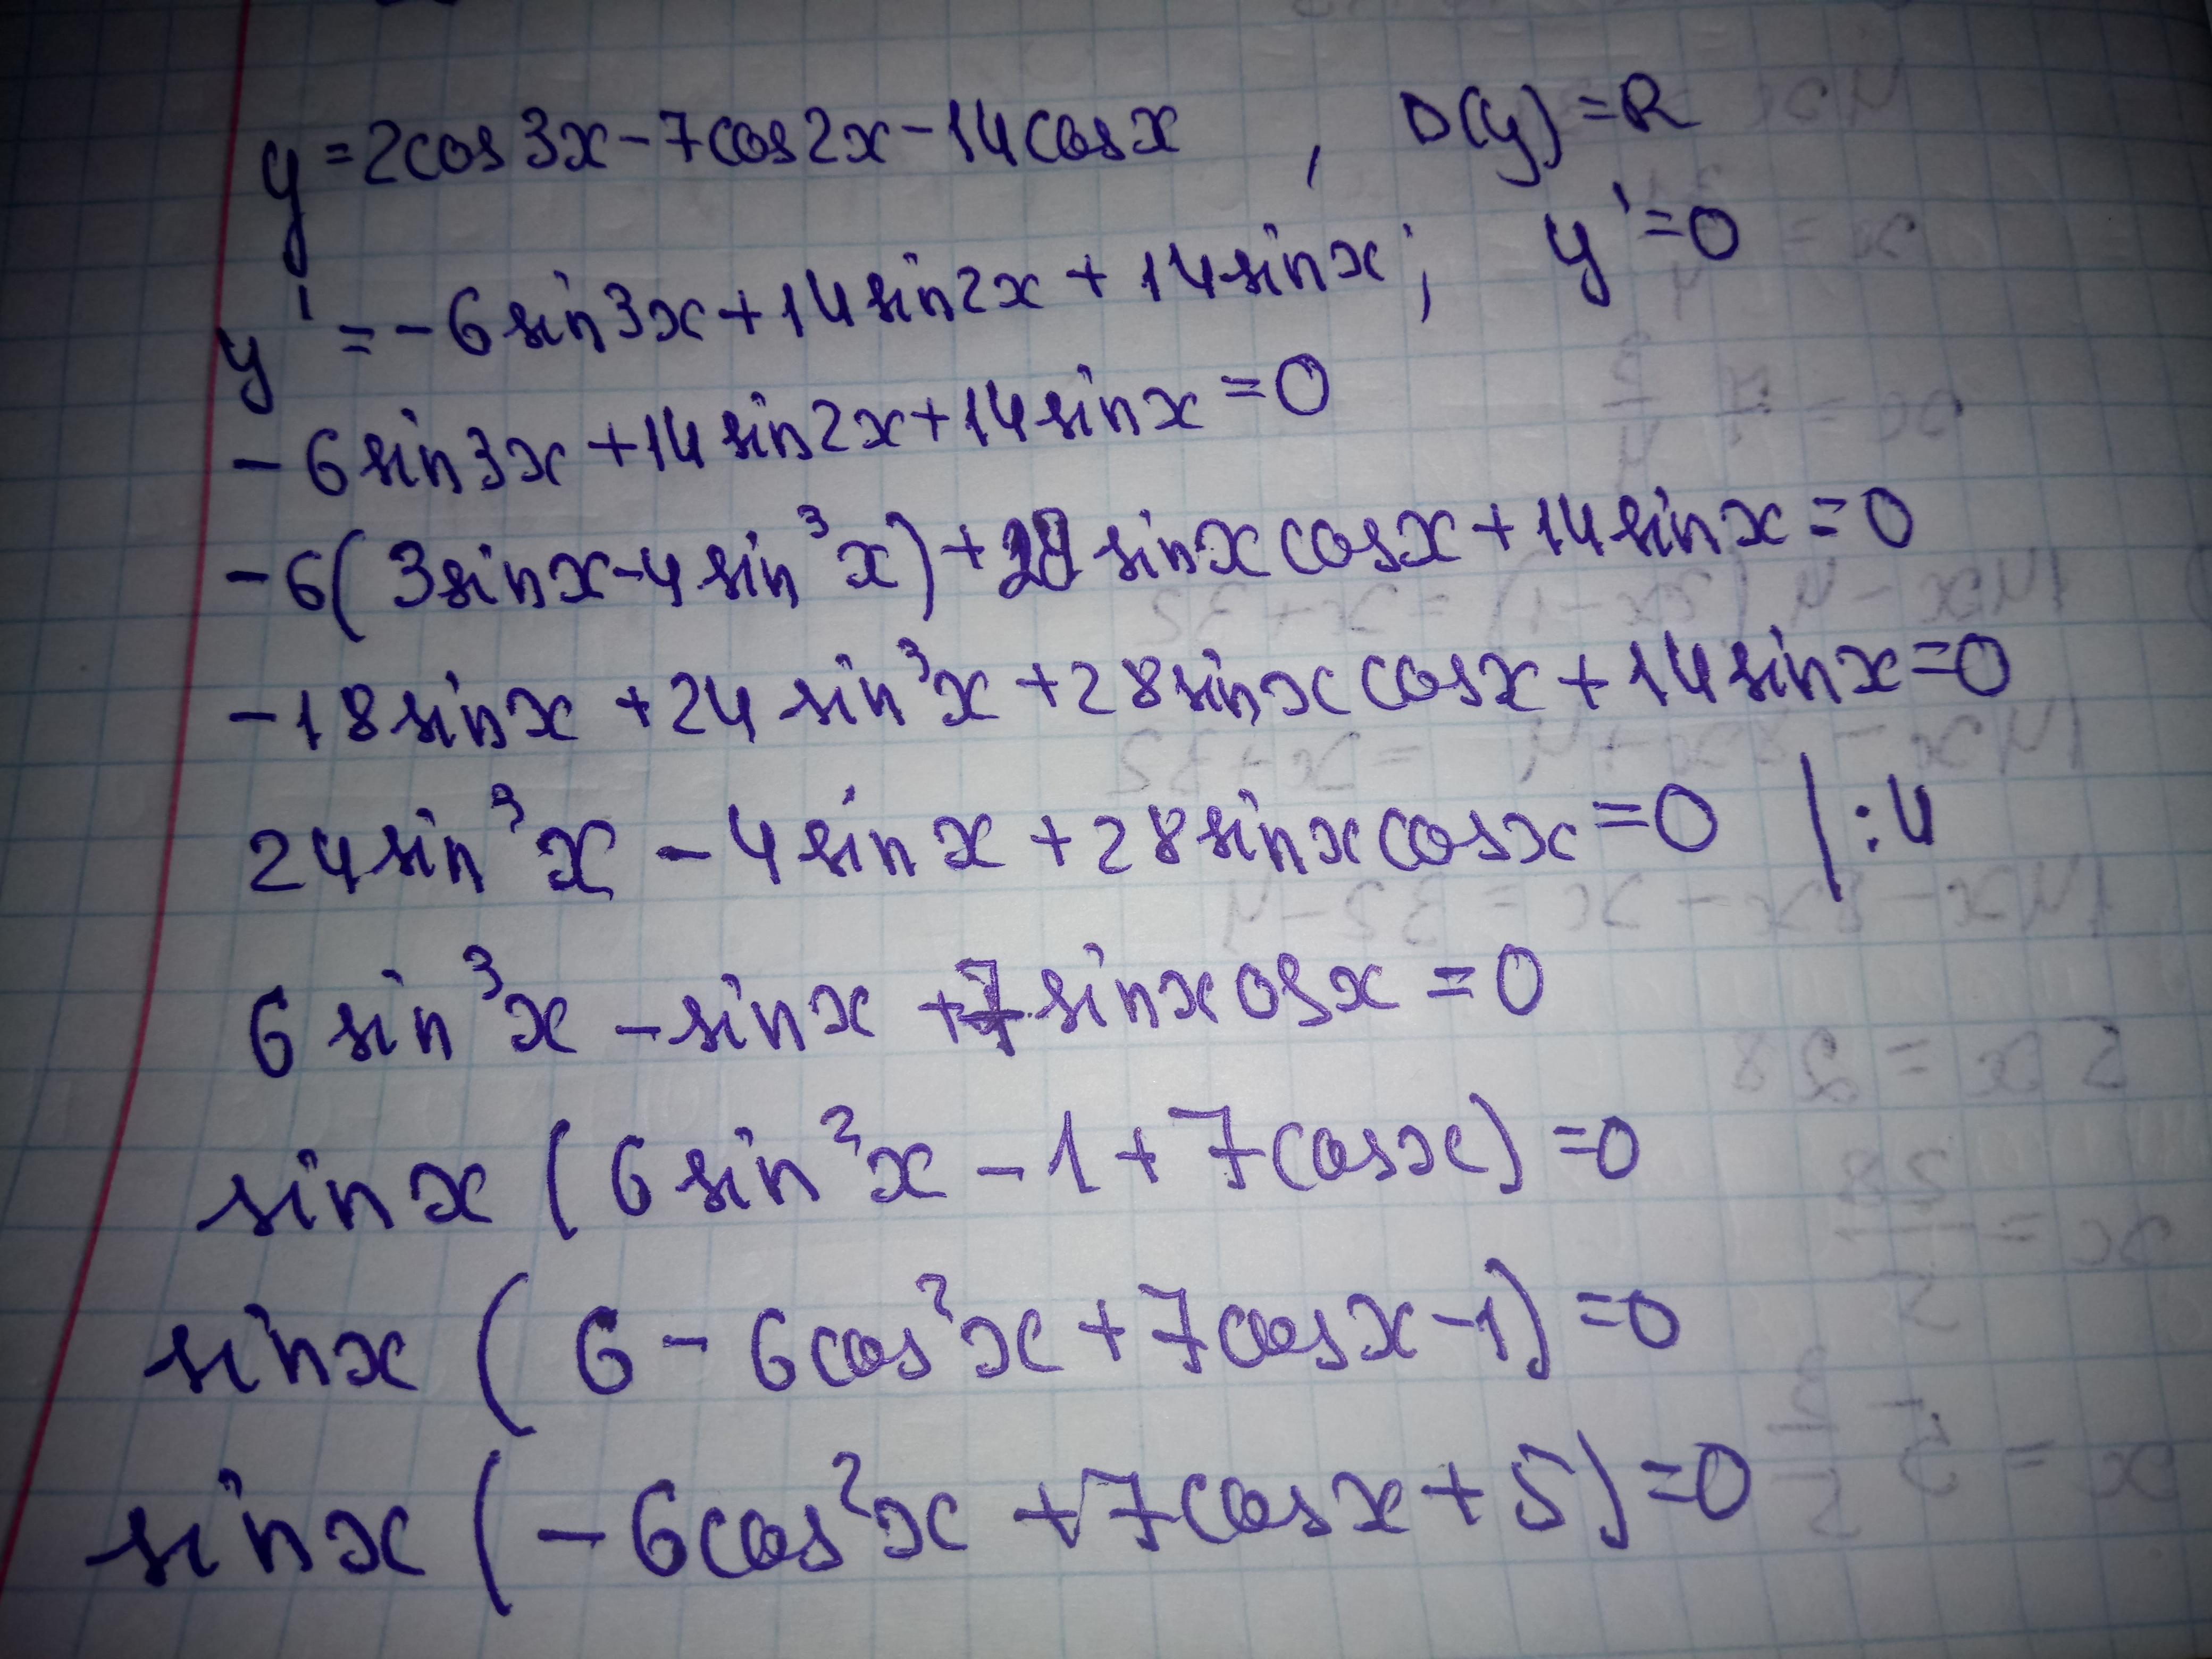 y = 2cos3x - 7cos2x - 14cosx , D(y) = R
y' = -6sin3x + 14sin2x + 14sinx; y' = 0
-6sin3x + 14sin2x + 14sinx = 0
-6(3sinx - 4sin³x) + 28sinxcosx + 14sinx = 0
-18sinx + 24sin³x + 28sinxcosx + 14sinx = 0
24sin³x - 4sinx + 28sinxcosx = 0 | :4
6sin³x - sinx + 7sinxosx = 0
sinx(6sin²x - 1 + 7cosx) = 0
sinx(6 - 6cos²x + 7cosx - 1) = 0
sinx(-6cos²x + 7cosx + 5) = 0